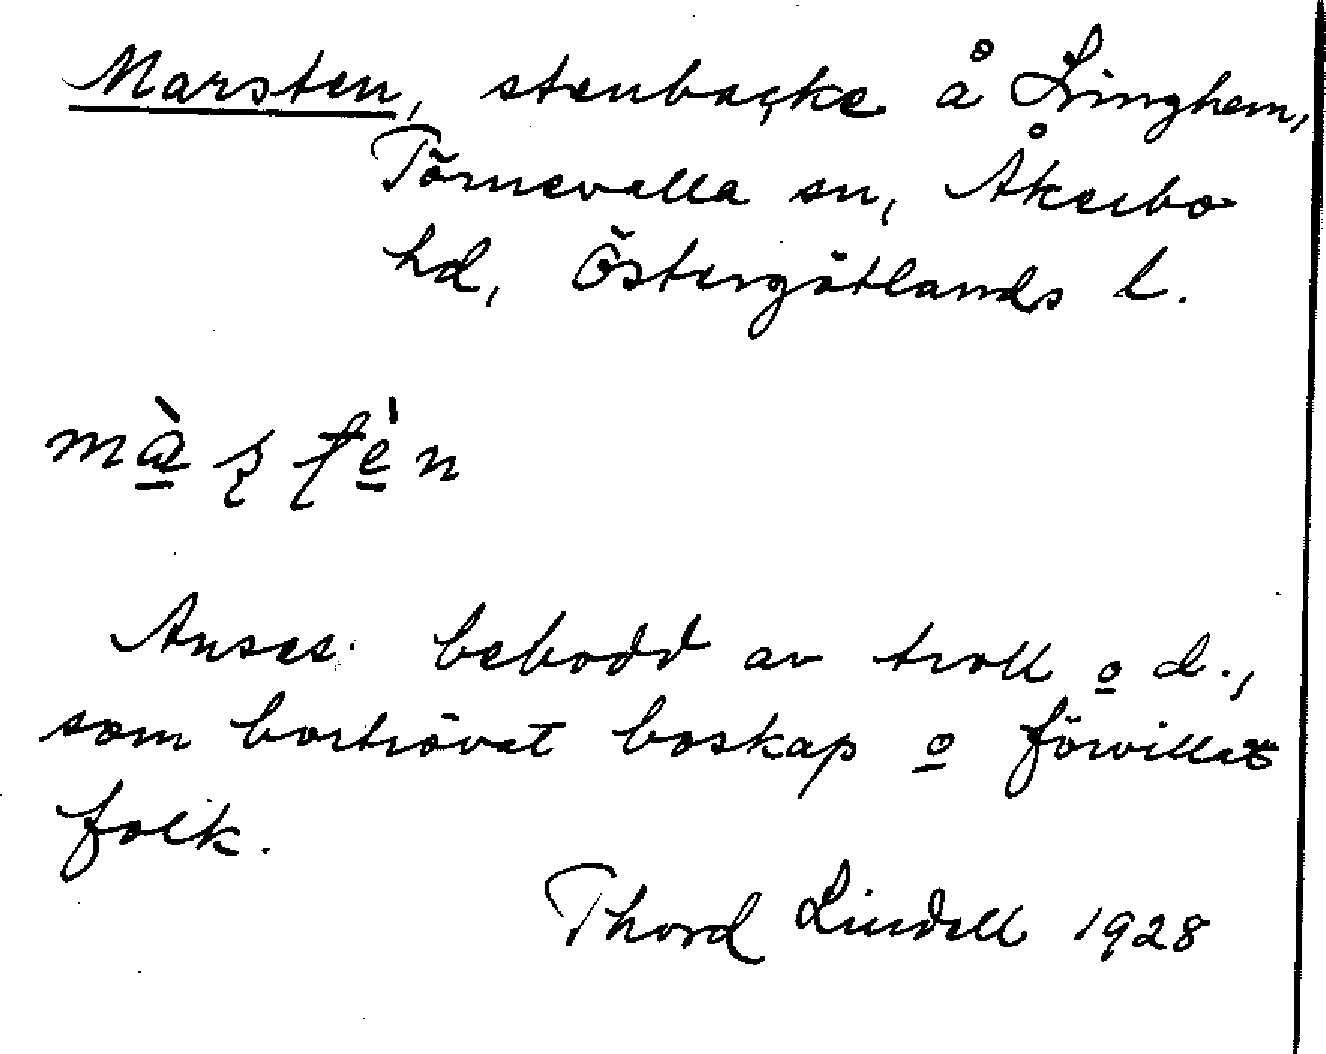 Marsten, stenbacke å Linghem,
Törnevalla sn, Åkerbo
hd, Östergötlands l.
Anses bebodd av troll o d.,
som bortrövat boskap o förvillat
folk.
Thord Lindell 1928